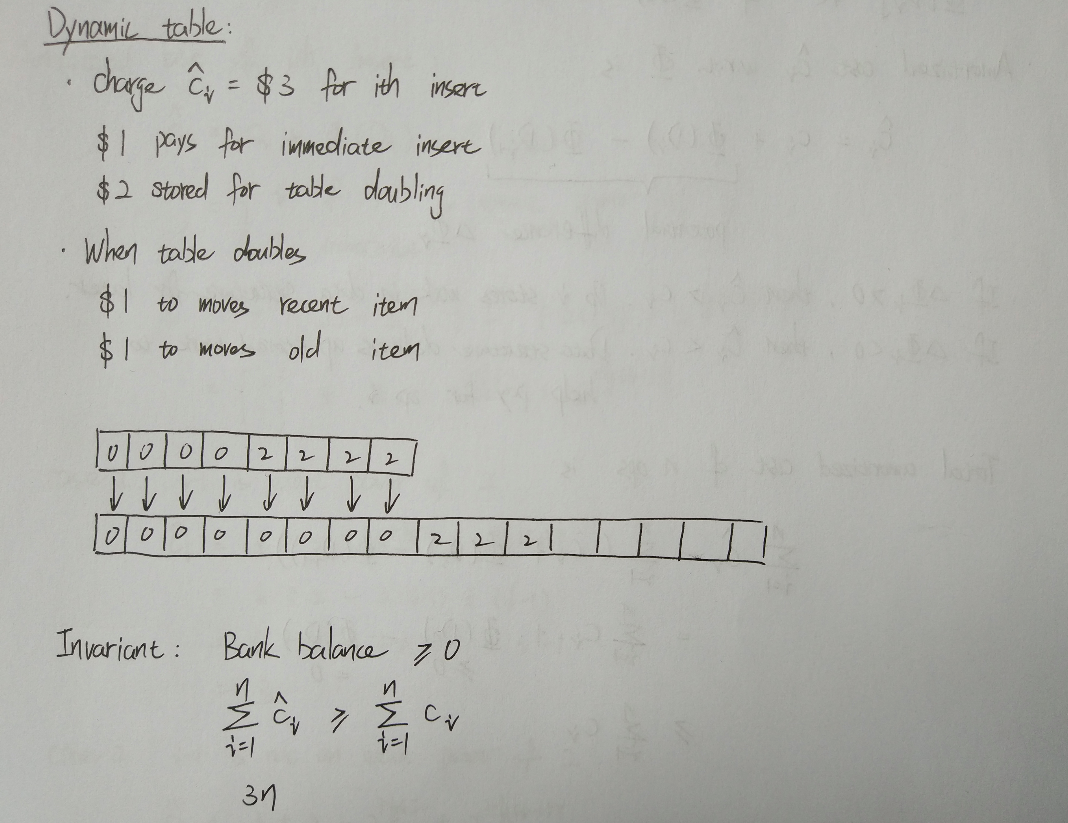 Dynamic table:
· charge ĉᵢ = $3 for ith insert
$1 pays for immediate insert
$2 stored for table doubling
· When table doubles
$1 to moves recent item
$1 to moves old item
0 0 0 0 2 2 2 2
↓ ↓ ↓ ↓ ↓ ↓ ↓ ↓
0 0 0 0 0 0 0 0 2 2 2
Invariant: Bank balance ⩾ 0
n n
Σ ĉᵢ ⩾ Σ cᵢ
i=1 i=1
3n